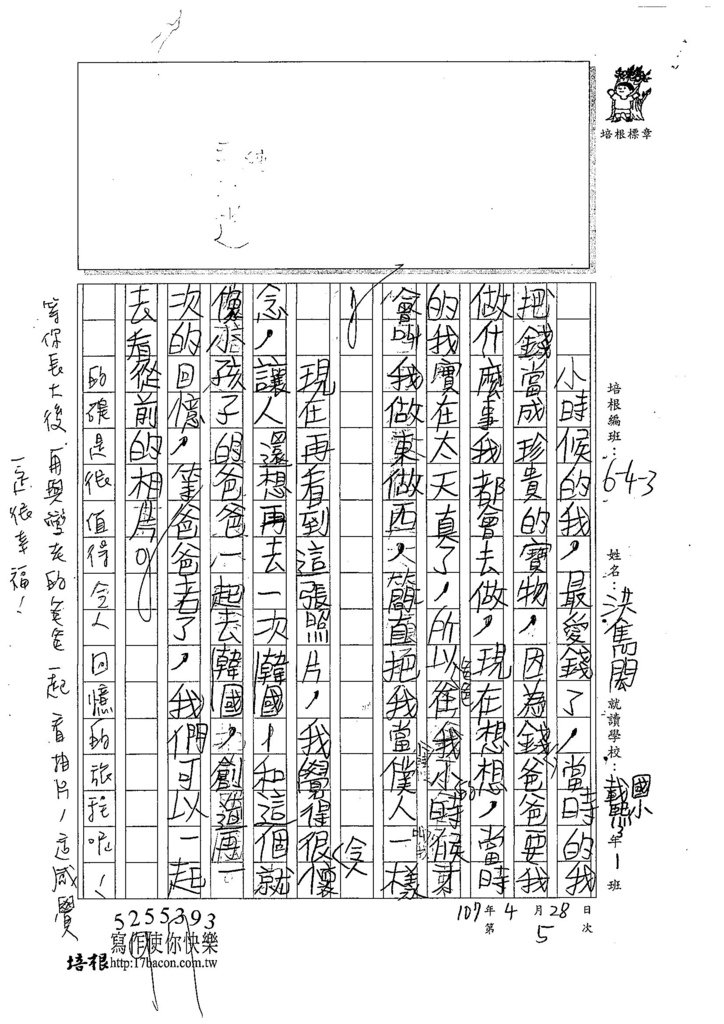 培根標章
培根編班：643
姓名：洪雋閎
就讀學校：載熙國小3年1班
107年4月28日
第5次
小時候的我，最愛錢了，當時的我
把錢當成珍貴的寶物，因為錢，爸爸要我
做什麼事我都會去做，現在想想，當時
的我實在太天真了，所以爸爸在我小時候
會叫我做東做西，簡直把我當僕人一樣
。
現在再看到這張照片，我覺得很令人懷
念，讓人還想再去一次韓國，和這個就
像小孩子的爸爸一起去韓國，創造再一
次的回憶，等爸爸老了，我們可以一起
去看從前的相片。
的確是很值得令人回憶的旅程呢！
等你長大後，再與愛你的爸爸一起看相片，這感覺
一定很幸福！
5255393
寫作使你快樂
培根http:17bacon.com.tw